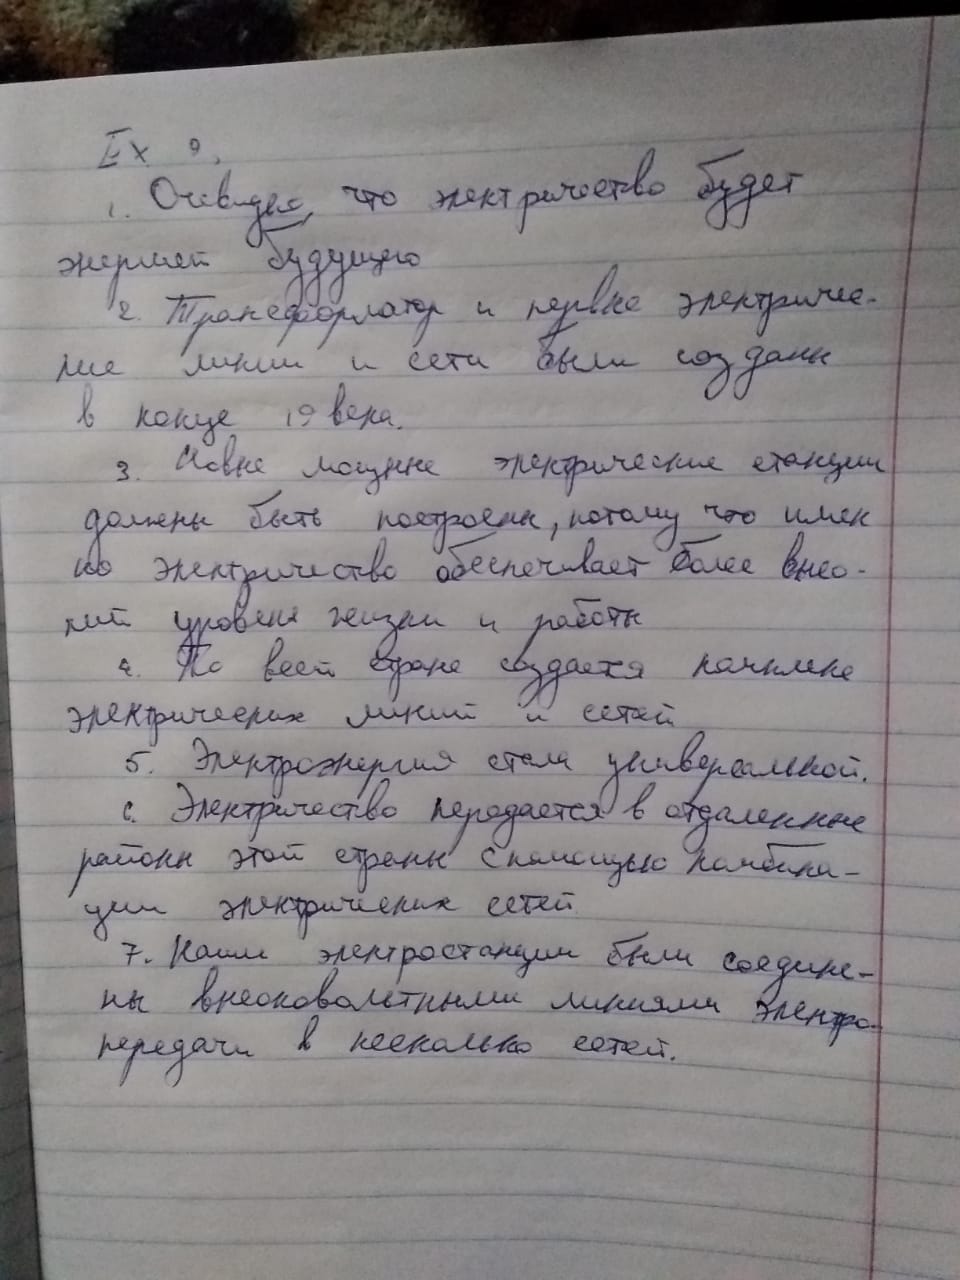 Ex 9.
1. Очевидно, что электричество будет
энергией будущего
2. Трансформатор и первые электричес-
кие линии и сети были созданы
в конце 19 века.
3. Новые мощные электрические станции
должны быть построены, потому что имен
но электричество обеспечивает более высо-
кий уровень жизни и работы
4. По всей стране создается
электрических линий и сетей
5. Электроэнергия стала универсальной.
6. Электричество передается в отдаленные
районы этой страны с помощью комбина-
ции электрических сетей
7. Наши электростанции были соедине-
ны высоковольтными линиями электро-
передачи в несколько сетей.